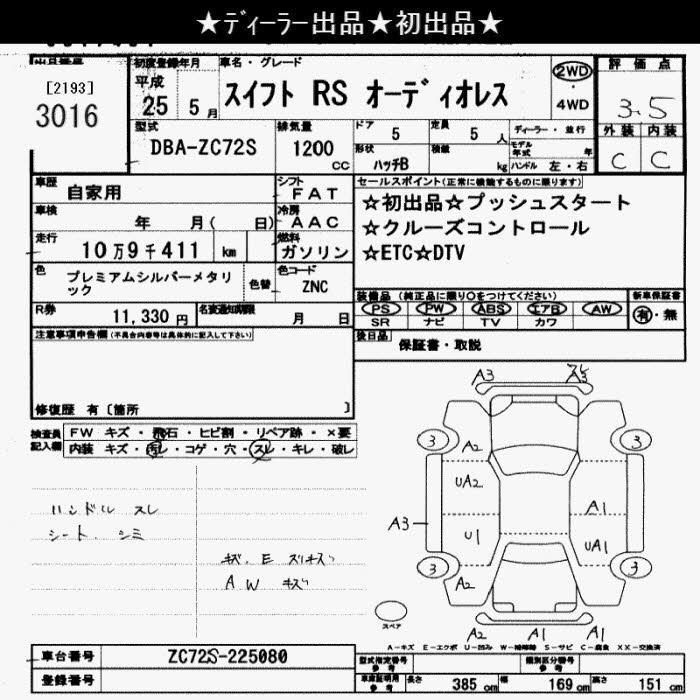 ★ディーラー出品★初出品★
出品番号
[2193]
3016
初度登録年月
平成
25
5月
車名・グレード
スイフト RS オーディオレス
2WD
・
4WD
評価点
3.5
外装 内装
C C
型式
DBA-ZC72S
排気量
1200
cc
ドア
5
定員
5 人
形状
ハッチB
積載
kg
ディーラー・並行
モデル年式
年
ハンドル 左・右
車歴
自家用
シフト
FAT
車検
年 月( 日)
冷房
AAC
走行
10万9千411 km
燃料
ガソリン
色
プレミアムシルバーメタリック
色替
色コード
ZNC
R券
11,330 円
名変通知期限
月 日
セールスポイント(正常に機能するものに限ります)
☆初出品☆プッシュスタート
☆クルーズコントロール
☆ETC☆DTV
装備品(純正品に限り○をつけてください)
PS PW ABS エアB AW
SR ナビ TV カワ
新車保証書
有・無
後日品
保証書・取説
注意事項申告欄(不具合内容等は具体的に記入して下さい)
修復歴 有〔箇所 〕
検査員記入欄
FW キズ・飛石・ヒビ割・リペア跡・×要
内装 キズ・汚レ・コゲ・穴・スレ・キレ・破レ
ハンドル スレ
シート. シミ
キズ. E スリキズ
A W キズ
A3
A3
3
3
A2
UA2
A1
A3
U1
UA1
3
3
A2
スペア
A2 A1 A1
A-キズ E-エクボ U-凹み W-補修跡 S-サビ C-腐食 XX-交換済
車台番号
ZC72S-225080
登録番号
型式指定番号
参考
類別区分番号
参考
車庫証明用
参考
長さ
385 cm
幅
169 cm
高さ
151 cm